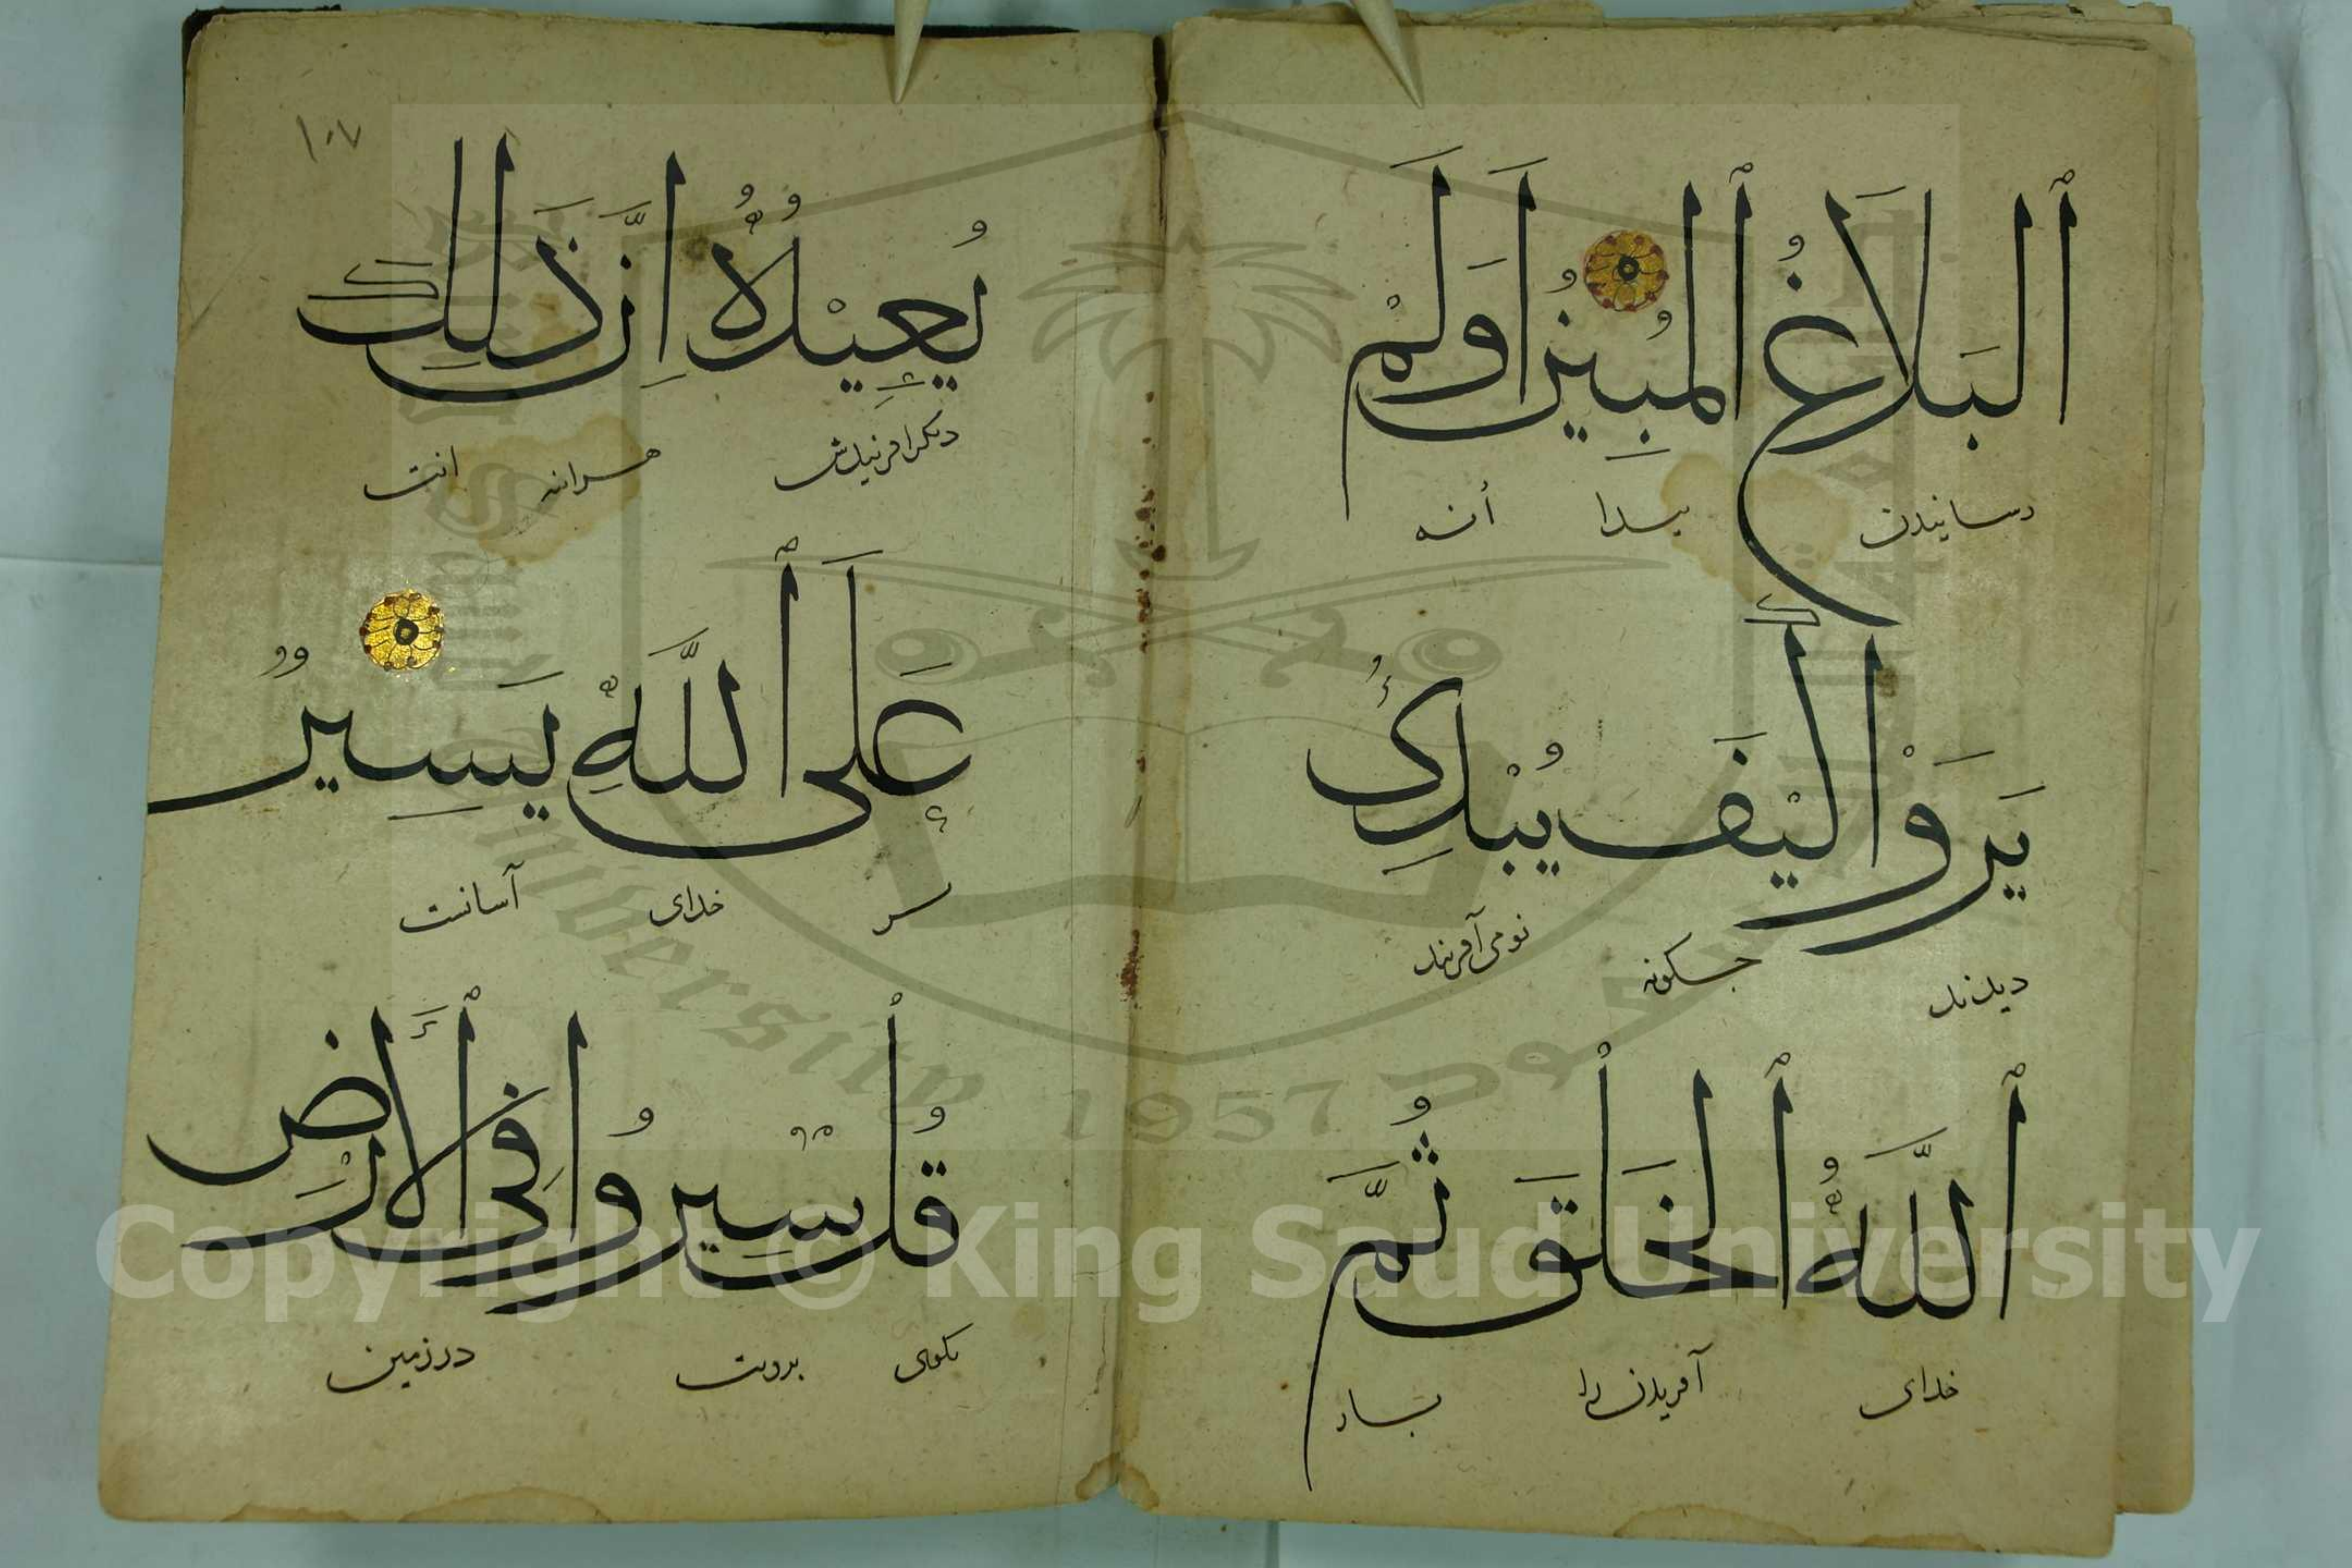 اَلبَلَاغُ اُلمُبِينُ اَوَلَمْ
رسانیدن پیدا أنه
يَرَوْا كَيْفَ يُبْدِئُ
دیدند چگونه نومی آفریند
اَللَّهُ اُلخَلْقَ ثُمَّ
خدای آفریدن را
١٠٧
يُعِيْدُهُ اِنَّ ذَلِكَ
دیگر آفریندش هراینه
عَلَى اَللَّهِ يَسِيرٌ
بر خدای آسانست
قُلْ سِيْرُوا فِى اَلْأَرْضِ
بگوی برویت در زمین
Copyright © King Saud University
1957